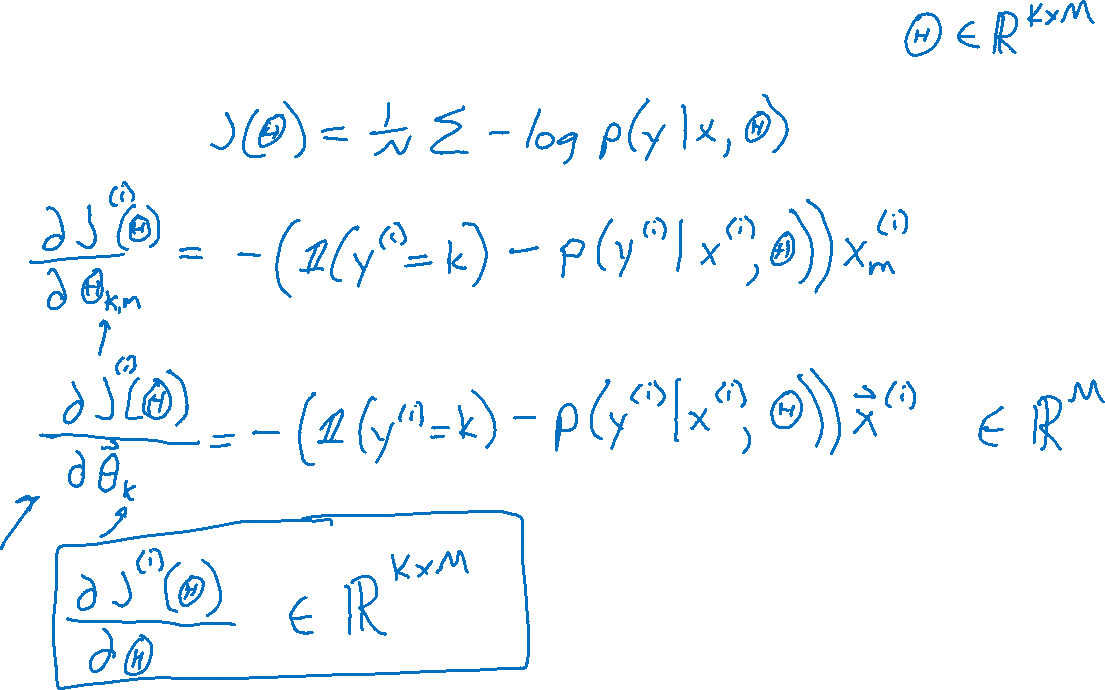 Θ ∈ ℝ^{K×M}
J(Θ) = 1/N Σ - log p(y|x, Θ)
∂J^{(i)}(Θ) / ∂Θ_{k,m} = -(𝟙(y^{(i)}=k) - p(y^{(i)}|x^{(i)}, Θ)) x_m^{(i)}
∂J^{(i)}(Θ) / ∂\vec{θ}_k = -(𝟙(y^{(i)}=k) - p(y^{(i)}|x^{(i)}, Θ)) \vec{x}^{(i)} ∈ ℝ^M
∂J^{(i)}(Θ) / ∂Θ ∈ ℝ^{K×M}